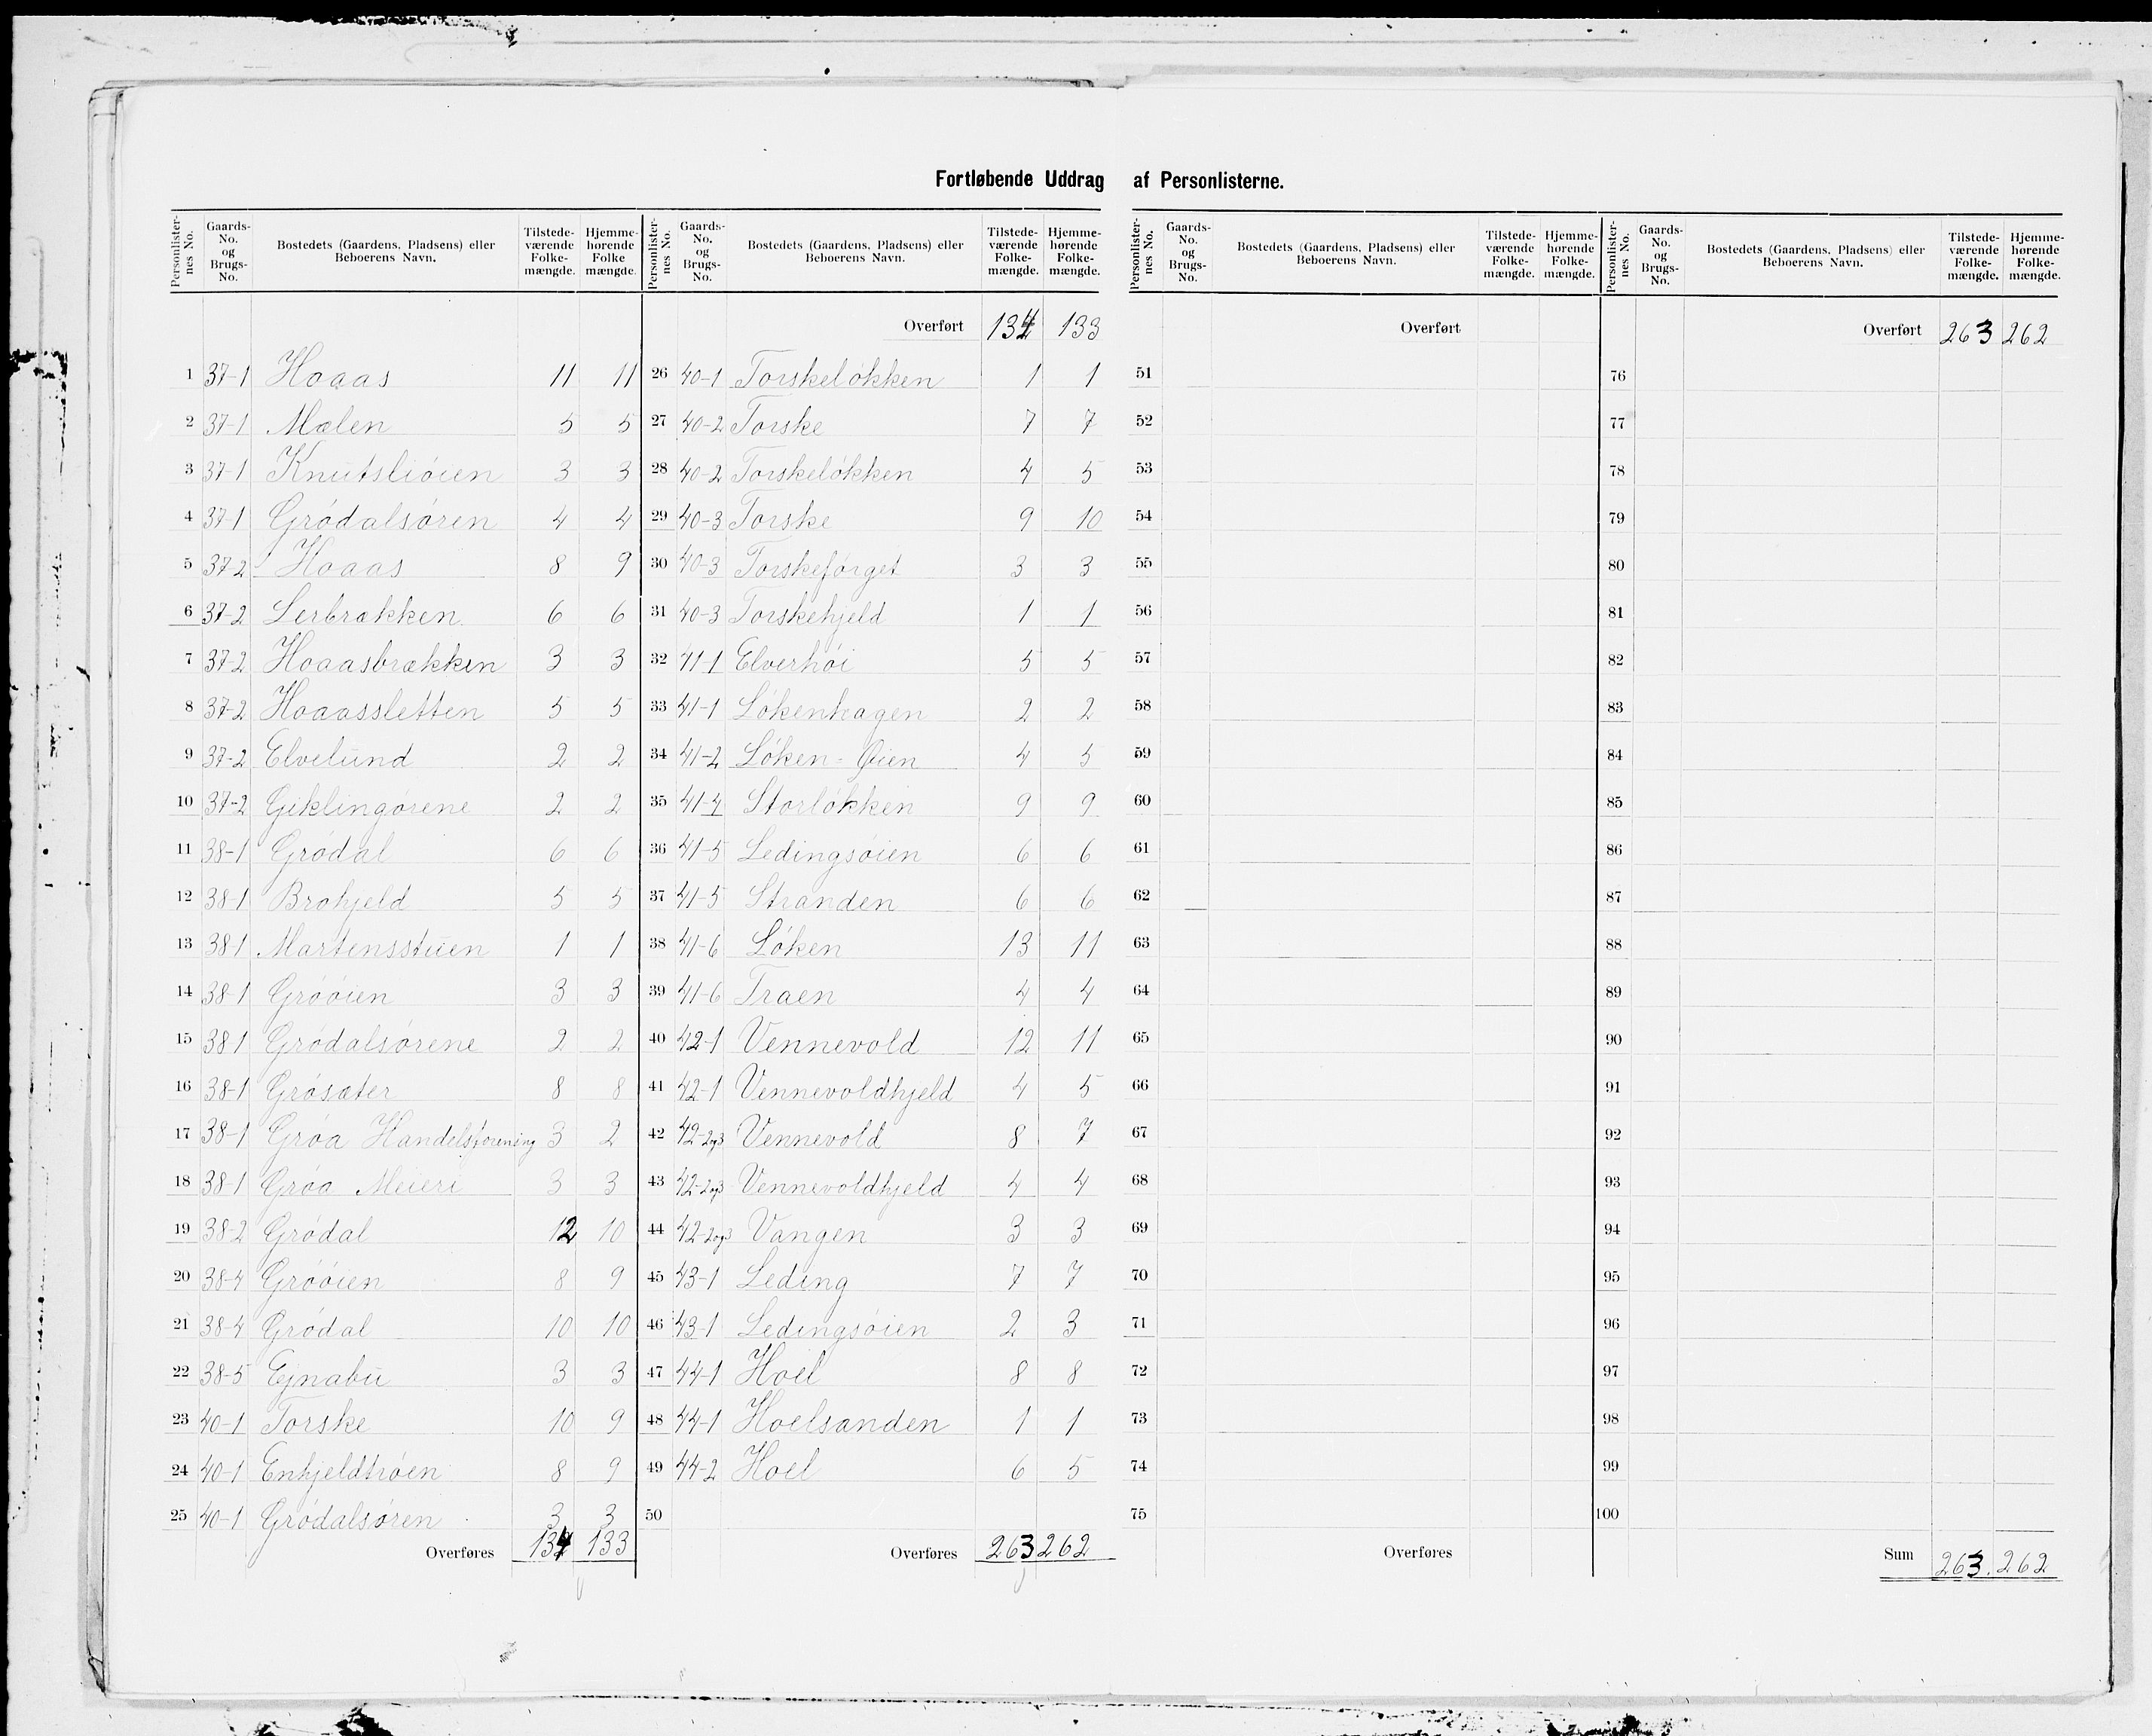 Fortløbende Uddrag af Personlisterne.
Personlister-nes No. Gaards-No. og Brugs-No. Bostedets (Gaardens, Pladsens) eller Beboerens Navn. Tilstede-værende Folke-mængde. Hjemme-hørende Folke mængde.
1 37-1 Hoaas 11 11
2 37-1 Mælen 5 5
3 37-1 Knutsliöien 3 3
4 37-1 Grödalsören 4 4
5 37-2 Hoaas 8 9
6 37-2 Lerbrækken 6 6
7 37-2 Hoaasbrækken 3 3
8 37-2 Hoaassletten 5 5
9 37-2 Elvelund 2 2
10 37-2 Giklingörene 2 2
11 38-1 Grödal 6 6
12 38-1 Brohjeld 5 5
13 38 1 Martensstuen 1 1
14 38-1 Grööien 3 3
15 38 1 Grödalsörene 2 2
16 38-1 Grösæter 8 8
17 38-1 Gröa Handelsforening 3 2
18 38-1 Gröa Meieri 3 3
19 38-2 Grödal 12 10
20 38-4 Grööien 8 9
21 38-4 Grödal 10 10
22 38-5 Ejnabu 3 3
23 40-1 Torske 10 9
24 40-1 Enhjeldtröen 8 9
25 40-1 Grödalsören 3 3
Overføres 134 133
Personlister-nes No. Gaards-No. og Brugs-No. Bostedets (Gaardens, Pladsens) eller Beboerens Navn. Tilstede-værende Folke-mængde. Hjemme-hørende Folke-mængde.
Overført 134 133
26 40-1 Torskelökken 1 1
27 40-2 Torske 7 7
28 40-2 Torskelökken 4 5
29 40-3 Torske 9 10
30 40-3 Torskeförget 3 3
31 40-3 Torskehjeld 1 1
32 41-1 Elverhöi 5 5
33 41-1 Lökenhagen 2 2
34 41-2 Löken-Øien 4 5
35 41-4 Storlökken 9 9
36 41-5 Ledingsöien 6 6
37 41-5 Stranden 6 6
38 41-6 Löken 13 11
39 41-6 Traen 4 4
40 42-1 Vennevold 12 11
41 42-1 Vennevoldhjeld 4 5
42 42-2og3 Vennevold 8 7
43 42-2og3 Vennevoldhjeld 4 4
44 42-2og3 Vangen 3 3
45 43-1 Leding 7 7
46 43-1 Ledingsöien 2 3
47 44-1 Hoel 8 8
48 44-1 Hoelsanden 1 1
49 44-2 Hoel 6 5
50
Overføres 263 262
Personlister-nes No. Gaards-No. og Brugs-No. Bostedets (Gaardens, Pladsens) eller Beboerens Navn. Tilstede-værende Folke-mængde. Hjemme-hørende Folke-mængde.
Overført
51
52
53
54
55
56
57
58
59
60
61
62
63
64
65
66
67
68
69
70
71
72
73
74
75
Overføres
Personlister-nes No. Gaards-No. og Brugs-No. Bostedets (Gaardens, Pladsens) eller Beboerens Navn. Tilstede-værende Folke-mængde. Hjemme-hørende Folke-mængde.
Overført 263 262
76
77
78
79
80
81
82
83
84
85
86
87
88
89
90
91
92
93
94
95
96
97
98
99
100
Sum 263. 262